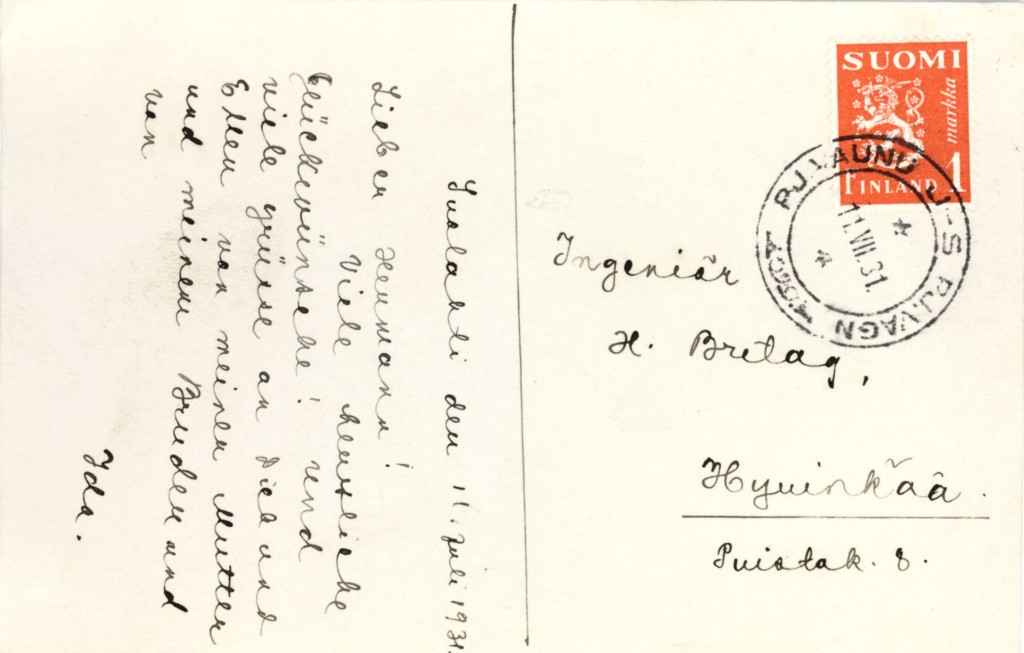 Suolahti den 11. juli 1931.
Lieber Hermann!
Viele herzliche
Glückwünsche! und
viele grüsse an Dich und
Ellen von meiner Mutter
und meinem Bruder und
von
Ida.
SUOMI
markka
FINLAND 1
PJ.VAUNU J-S PJ.VAGN
11.VII.31.
Ingeniör
H. Bretag,
Hyvinkää.
Puistok. 8.